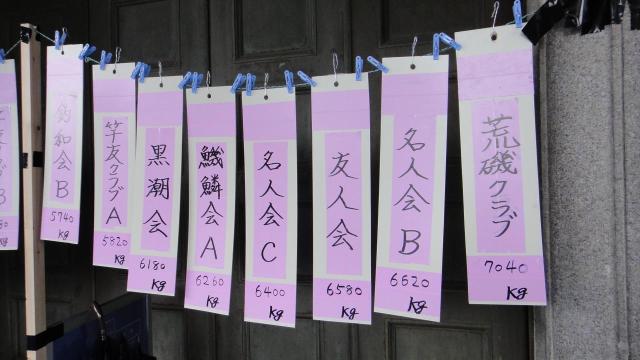 荒磯クラブ
7040
Kg
名人会B
6620
Kg
友人会
6580
Kg
名人会C
6400
Kg
鱗会A
6260
Kg
黒潮会
6180
Kg
竿友クラブA
5820
Kg
釣和会B
5740
Kg
B
Kg